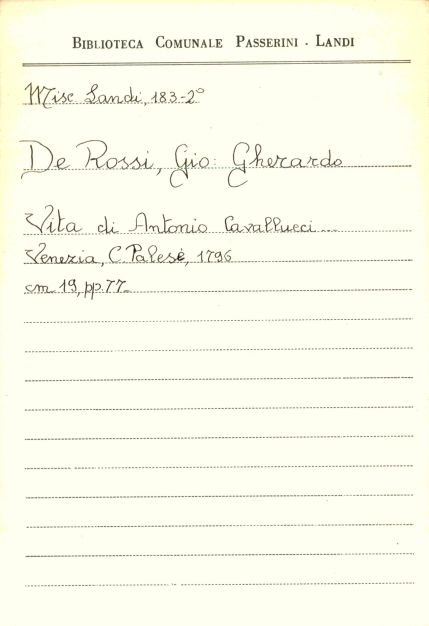 BIBLIOTECA COMUNALE PASSERINI - LANDI
Misc Landi, 183-2°
De Rossi, Gio: Gherardo
Vita di Antonio Cavallucci...
Venezia, C. Palese, 1796
cm 19, pp. 77